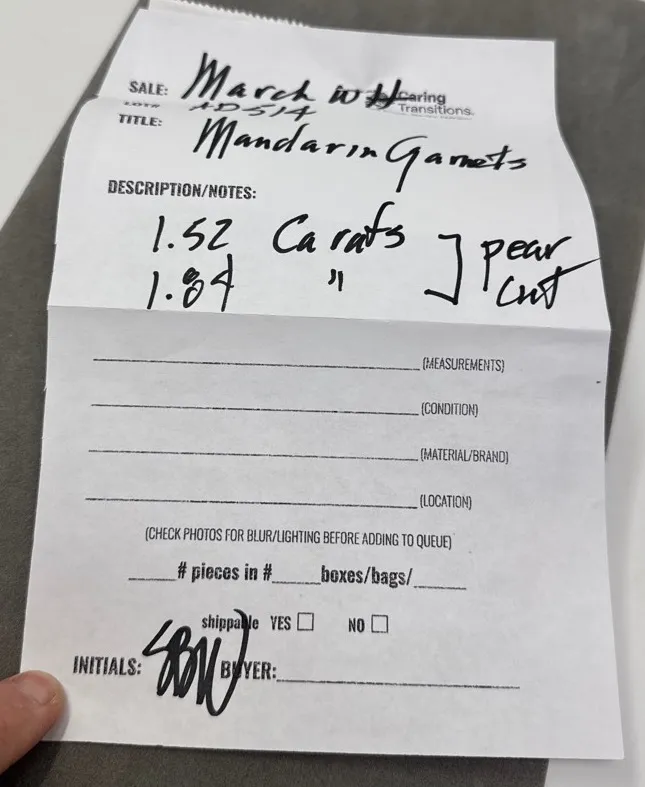 SALE: March W H Caring
Transitions.
LOT# AD514
TITLE: Mandarin Garnets
DESCRIPTION/NOTES:
1.52 Carats ] pear
1.84 " cut
(MEASUREMENTS)
(CONDITION)
(MATERIAL/BRAND)
(LOCATION)
(CHECK PHOTOS FOR BLUR/LIGHTING BEFORE ADDING TO QUEUE)
# pieces in # boxes/bags/
shippable YES NO
INITIALS: SBW BUYER: